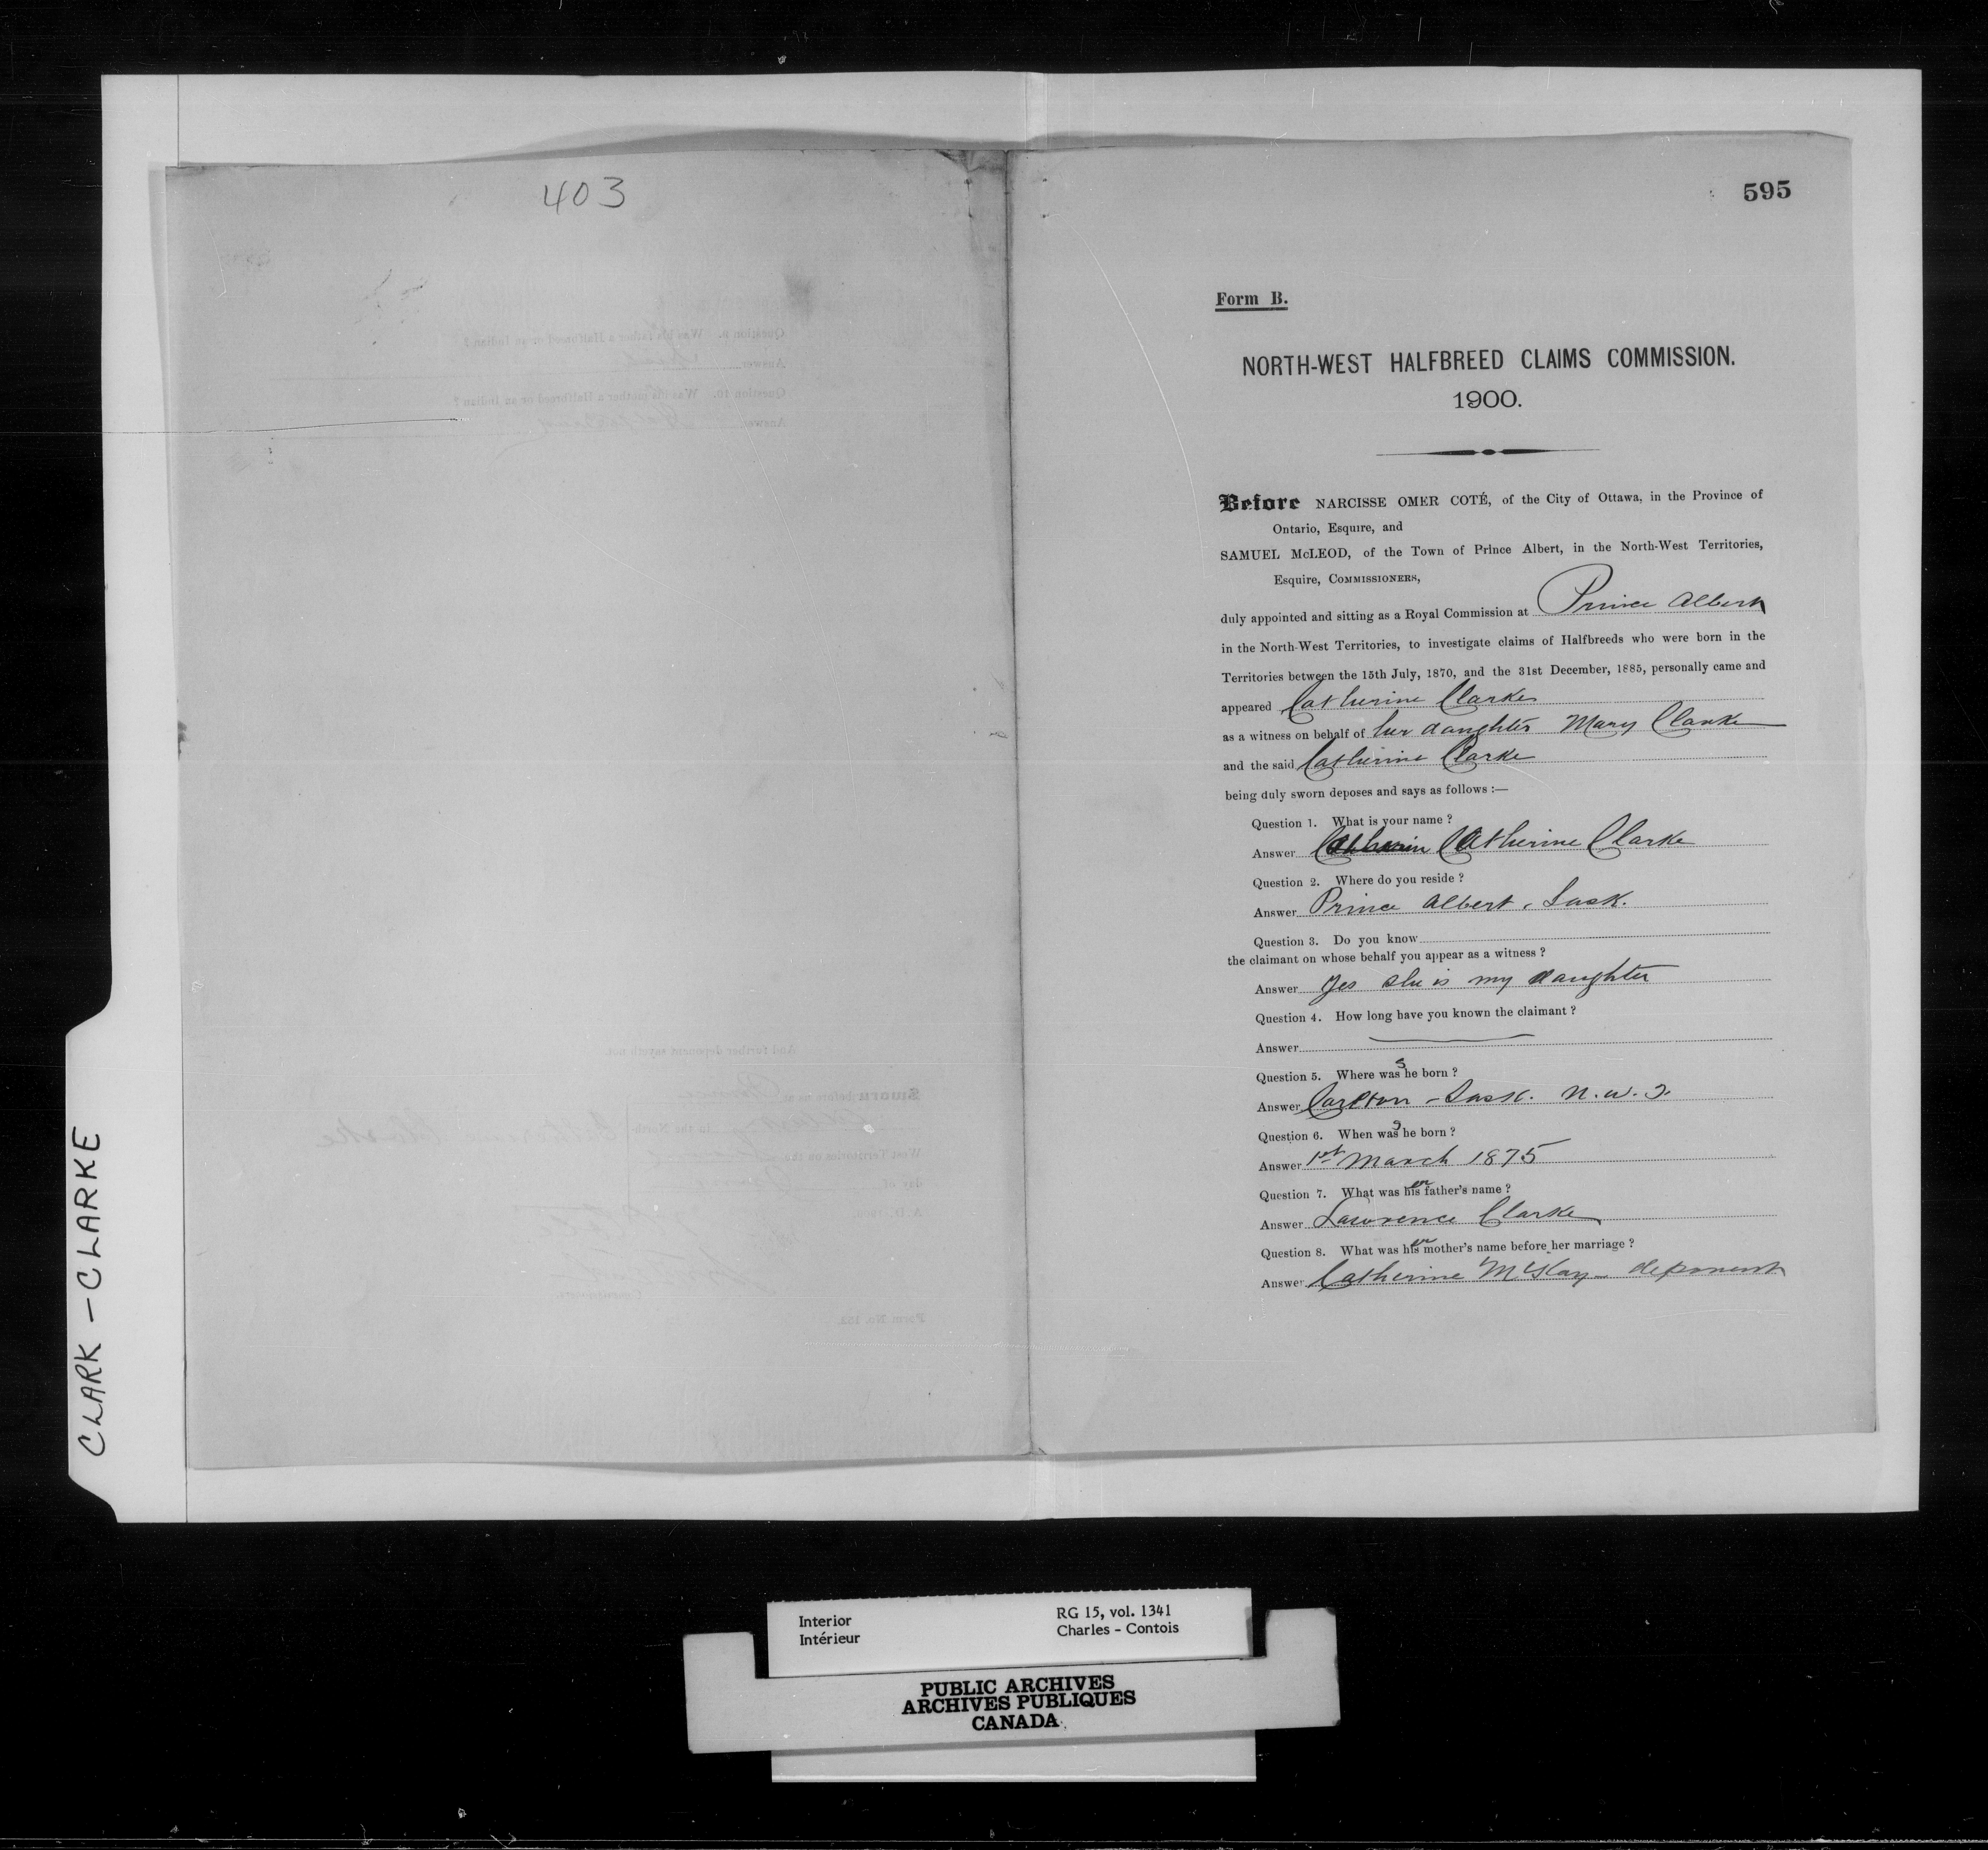 403
595
Form B.
NORTH-WEST HALFBREED CLAIMS COMMISSION.
1900.
Before NARCISSE OMER COTÉ, of the City of Ottawa, in the Province of
Ontario, Esquire, and
SAMUEL McLEOD, of the Town of Prince Albert, in the North-West Territories,
Esquire, COMMISSIONERS,
duly appointed and sitting as a Royal Commission at Prince Albert
in the North-West Territories, to investigate claims of Halfbreeds who were born in the
Territories between the 15th July, 1870, and the 31st December, 1885, personally came and
appeared Catherine Clarke
as a witness on behalf of her daughter Mary Clarke
and the said Catherine Clarke
being duly sworn deposes and says as follows :—
Question 1. What is your name ?
Answer Catherine Clarke
Question 2. Where do you reside ?
Answer Prince Albert, Sask.
Question 3. Do you know
the claimant on whose behalf you appear as a witness ?
Answer Yes she is my daughter
Question 4. How long have you known the claimant ?
Answer
Question 5. Where was she born ?
Answer Carlton - Sask. N.W.T.
Question 6. When was she born ?
Answer 1st March 1875
Question 7. What was her father's name ?
Answer Lawrence Clarke
Question 8. What was her mother's name before her marriage ?
Answer Catherine McKay deponent
CLARK - CLARKE
Interior
Intérieur
RG 15, vol. 1341
Charles - Contois
PUBLIC ARCHIVES
ARCHIVES PUBLIQUES
CANADA